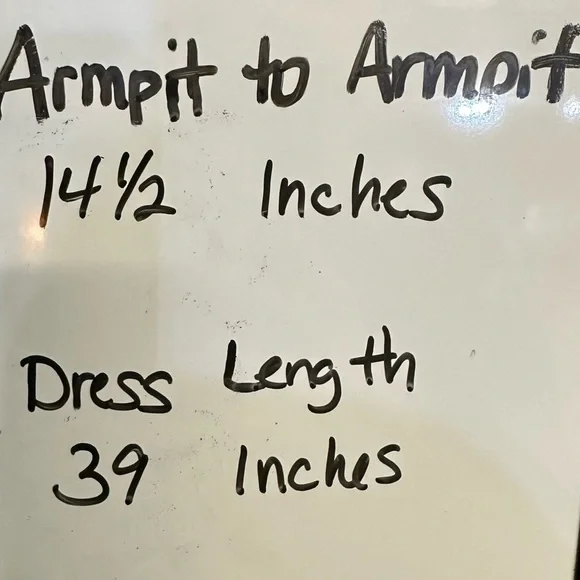 Armpit to Armpit
14 1/2 Inches
Dress Length
39 Inches